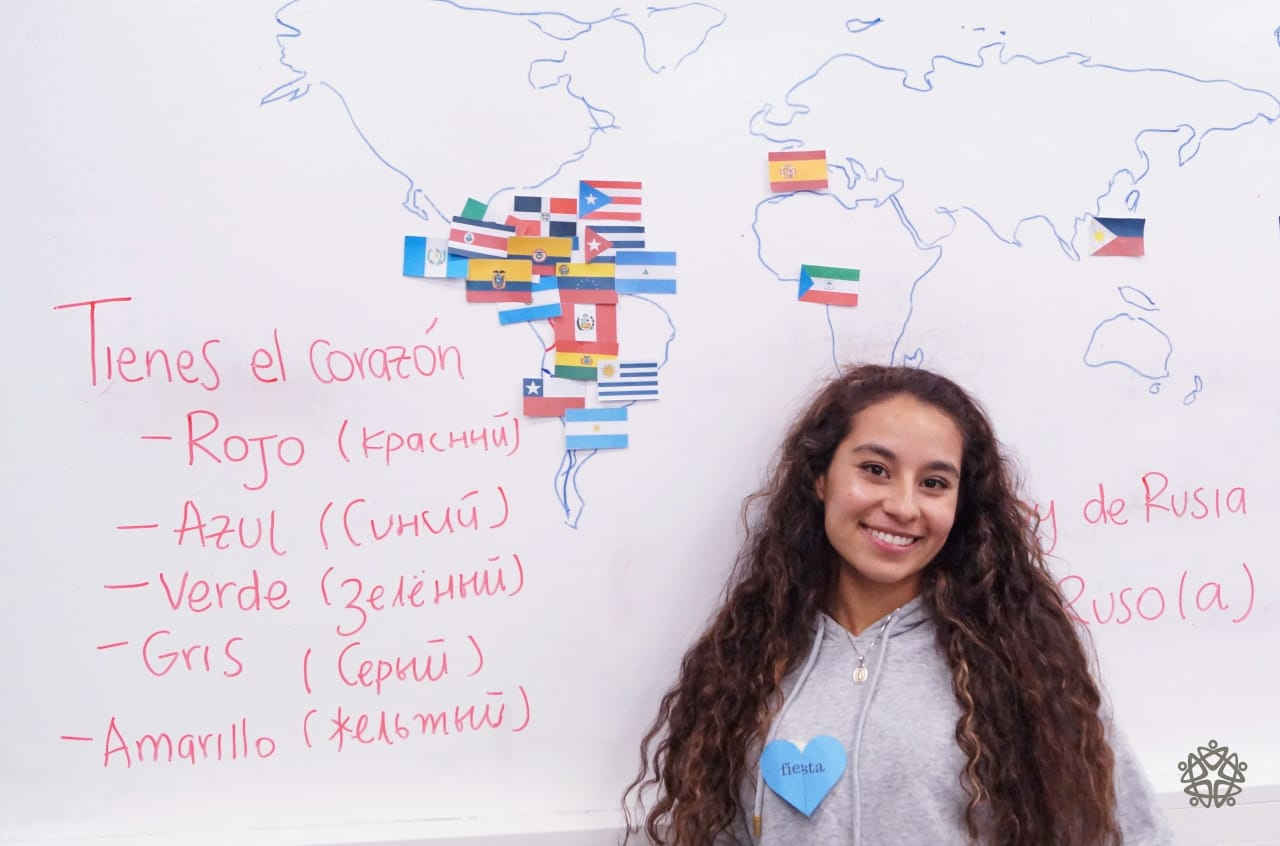 Tienes el corazón
- Rojo (красний)
- Azul (Синий)
- Verde (Зелёный)
- Gris (Серый)
- Amarillo (жельтый)
y de Rusia
Ruso(a)
fiesta